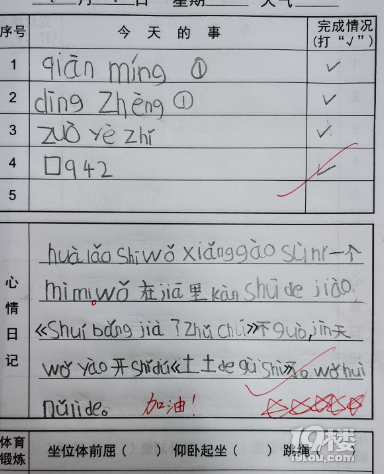 星期 天气
序号 今天的事 完成情况(打“√”)
1 qiān míng ① √
2 dìng Zhèng ① √
3 zuò yè zhǐ √
4 □942 √
5
心情日记
huà lǎo shī wǒ xiǎng gào sù nǐ 一个
mì mì wǒ 在 jiā 里 kàn shū de jiào
《Shuí bǎng jià 了 Zhū Chú》不 guò, jīn 天
wǒ yào 开 shǐ dú《土土 de gù shi》 wǒ huì
nǔ lì de。 加油!
体育锻炼 坐位体前屈( ) 仰卧起坐( ) 跳绳( )
19楼
19lou.com